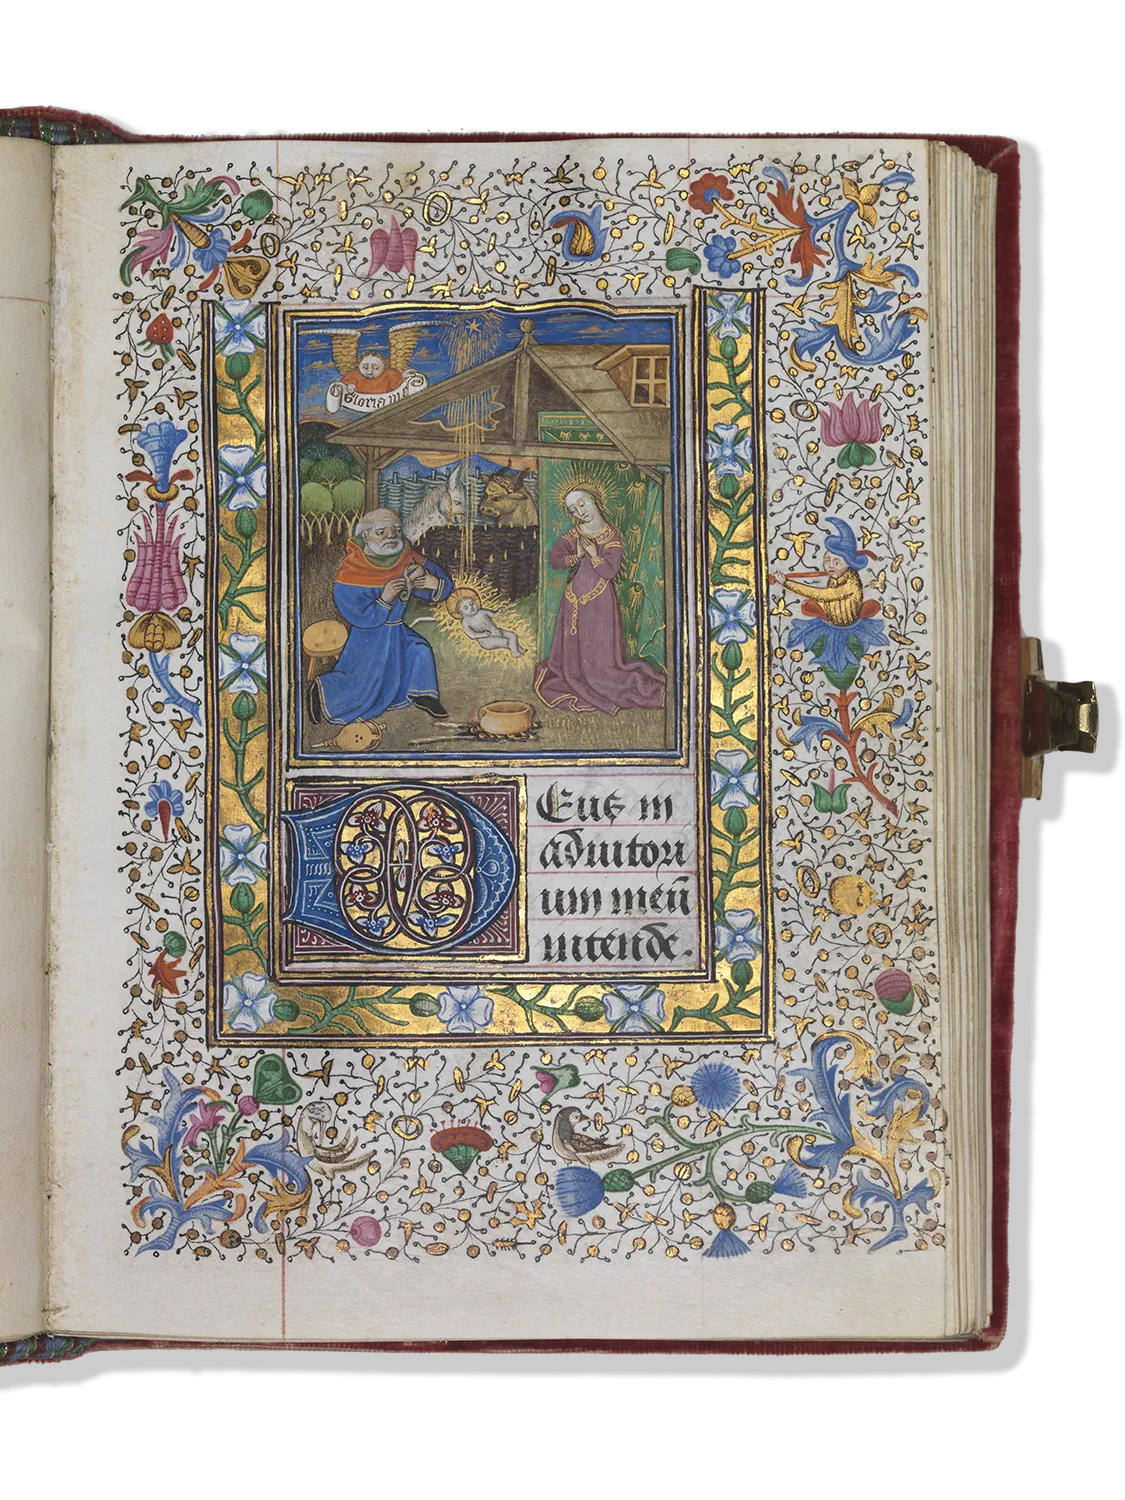 Gloria in e
Deus in
adiutori
um meū
intende.